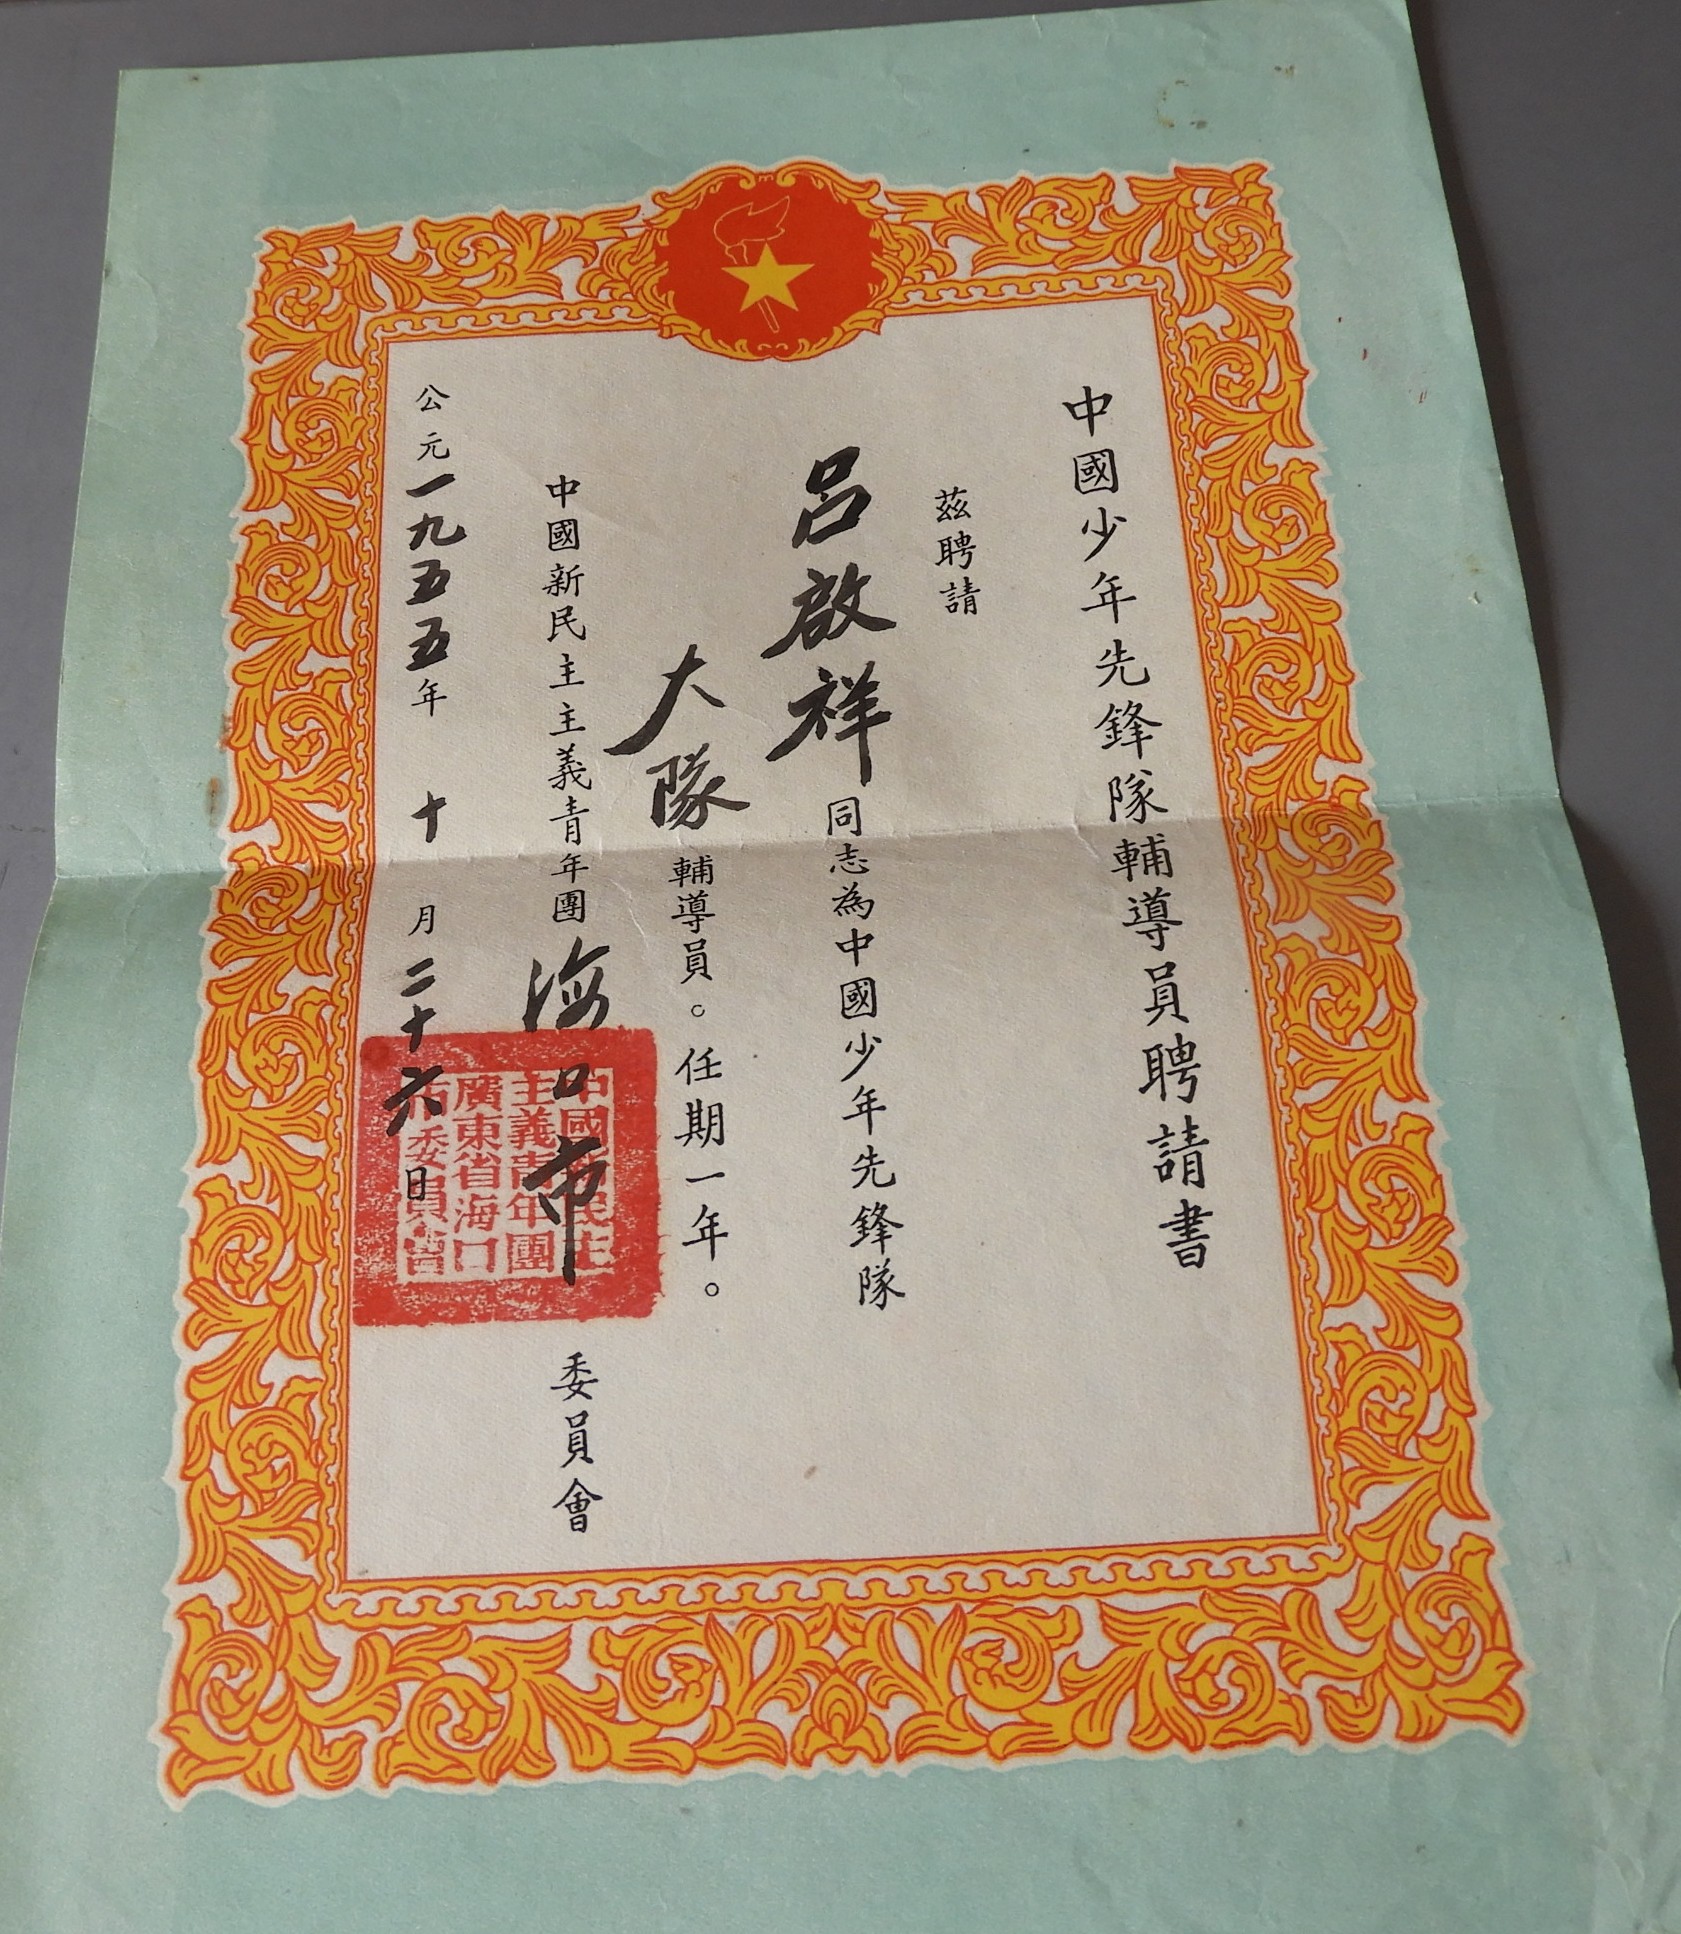 中國少年先鋒隊輔導員聘請書
茲聘請
呂啟祥同志為中國少年先鋒隊
大隊輔導員。任期一年。
中國新民主主義青年團海口市委員會
公元一九五五年十月二十六日
中國新民主
主義青年團
廣東省海口
市委員會